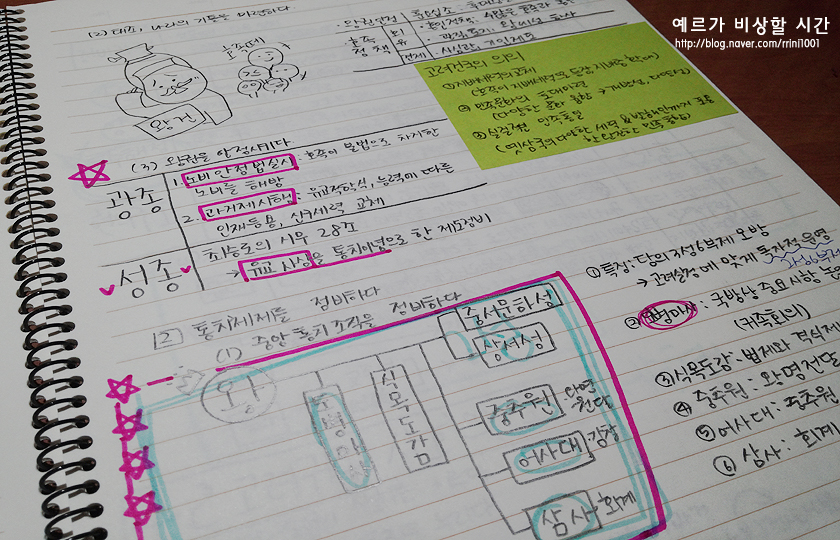 예르가 비상할 시간
http://blog.naver.com/rrini1001
(2) 태조, 나라의 기틀을 마련하다
호족
정책
회
유
견제
고려건국의 의의
① 지배세력의 교체
② 민족문화의 토대마련
③ 실질적인 민족통일
왕건
(3) 왕권을 안정시키다
광종
1. 노비안정법실시 : 호족이 불법으로 차지한
노비를 해방
2. 과거제시행 : 유교적학식, 능력에 따른
인재등용, 신구세력 교체
성종
최승로의 시무 28조
→ 유교사상을 통치이념으로 한 제도정비
[2] 통치체제를 정비하다
(1) 중앙 통치조직을 정비하다
왕
도병마사
식목도감
중서문하성
상서성
중추원
어사대 감찰
삼사 회계
① 특징: 당의 3성6부제 모방
→ 고려실정에 맞게 독자적 운영
② 도병마사 : 국방상 중요사항
(귀족회의)
③ 식목도감 : 법제와 격식
④ 중추원 : 왕명전달
⑤ 어사대 :
⑥ 삼사 : 회계